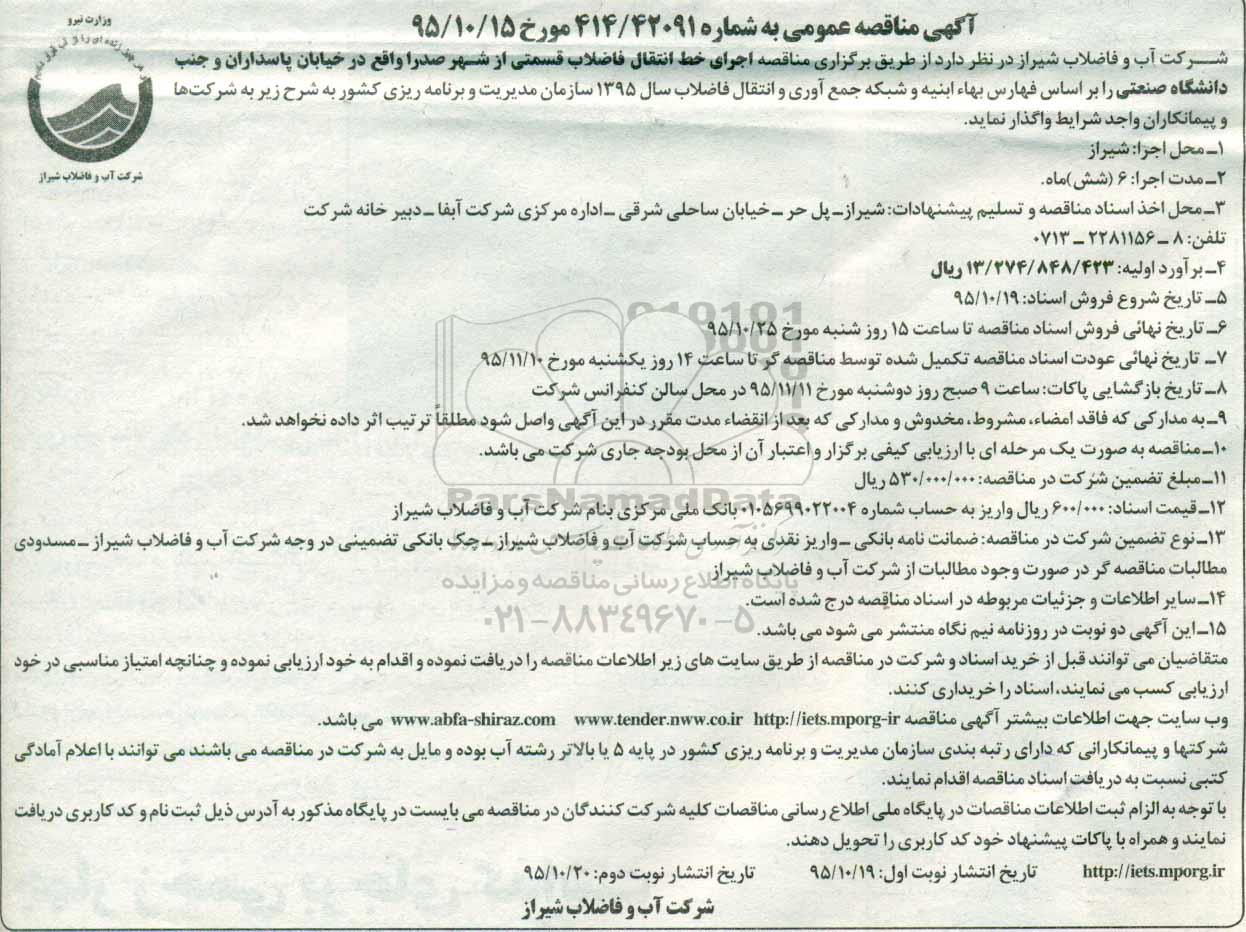 آگهی مناقصه عمومی به شماره ۴۱۴/۴۲۰۹۱ مورخ ۹۵/۱۰/۱۵
وزارت نیرو
شرکت آب و فاضلاب شیراز
شـــرکت آب و فاضلاب شیراز در نظر دارد از طریق برگزاری مناقصه اجرای خط انتقال فاضلاب قسمتی از شهر صدرا واقع در خیابان پاسداران و جنب
دانشگاه صنعتی را بر اساس فهارس بهاء ابنیه و شبکه جمع آوری و انتقال فاضلاب سال ۱۳۹۵ سازمان مدیریت و برنامه ریزی کشور به شرح زیر به شرکت‌ها
و پیمانکاران واجد شرایط واگذار نماید.
۱ـ محل اجرا: شیراز
۲ـ مدت اجرا: ۶ (شش)ماه.
۳ـ محل اخذ اسناد مناقصه و تسلیم پیشنهادات: شیراز ـ پل حر ـ خیابان ساحلی شرقی ـ اداره مرکزی شرکت آبفا ـ دبیر خانه شرکت
تلفن: ۸ ـ ۲۲۸۱۱۵۶ ـ ۰۷۱۳
۴ـ برآورد اولیه: ۱۳/۲۷۴/۸۴۸/۴۲۳ ریال
۵ـ تاریخ شروع فروش اسناد: ۹۵/۱۰/۱۹
۶ـ تاریخ نهائی فروش اسناد مناقصه تا ساعت ۱۵ روز شنبه مورخ ۹۵/۱۰/۲۵
۷ـ تاریخ نهائی عودت اسناد مناقصه تکمیل شده توسط مناقصه گر تا ساعت ۱۴ روز یکشنبه مورخ ۹۵/۱۱/۱۰
۸ـ تاریخ بازگشایی پاکات: ساعت ۹ صبح روز دوشنبه مورخ ۹۵/۱۱/۱۱ در محل سالن کنفرانس شرکت
۹ـ به مدارکی که فاقد امضاء، مشروط، مخدوش و مدارکی که بعد از انقضاء مدت مقرر در این آگهی واصل شود مطلقاً ترتیب اثر داده نخواهد شد.
۱۰ـ مناقصه به صورت یک مرحله ای با ارزیابی کیفی برگزار و اعتبار آن از محل بودجه جاری شرکت می باشد.
۱۱ـ مبلغ تضمین شرکت در مناقصه: ۵۳۰/۰۰۰/۰۰۰ ریال
ParsNamadData
۱۲ـ قیمت اسناد: ۶۰۰/۰۰۰ ریال واریز به حساب شماره ۰۱۰۵۶۹۹۰۲۲۰۰۴ بانک ملی مرکزی بنام شرکت آب و فاضلاب شیراز
۱۳ـ نوع تضمین شرکت در مناقصه: ضمانت نامه بانکی ـ واریز نقدی به حساب شرکت آب و فاضلاب شیراز ـ چک بانکی تضمینی در وجه شرکت آب و فاضلاب شیراز ـ مسدودی
مطالبات مناقصه گر در صورت وجود مطالبات از شرکت آب و فاضلاب شیراز
پایگاه اطلاع رسانی مناقصه و مزایده
۱۴ـ سایر اطلاعات و جزئیات مربوطه در اسناد مناقصه درج شده است.
۰۲۱-۸۸۳۴۹۶۷۰-۵
۱۵ـ این آگهی دو نوبت در روزنامه نیم نگاه منتشر می شود می باشد.
متقاضیان می توانند قبل از خرید اسناد و شرکت در مناقصه از طریق سایت های زیر اطلاعات مناقصه را دریافت نموده و اقدام به خود ارزیابی نموده و چنانچه امتیاز مناسبی در خود
ارزیابی کسب می نمایند، اسناد را خریداری کنند.
وب سایت جهت اطلاعات بیشتر آگهی مناقصه http://iets.mporg-ir www.tender.nww.co.ir www.abfa-shiraz.com می باشد.
شرکتها و پیمانکارانی که دارای رتبه بندی سازمان مدیریت و برنامه ریزی کشور در پایه ۵ یا بالاتر رشته آب بوده و مایل به شرکت در مناقصه می باشند می توانند با اعلام آمادگی
کتبی نسبت به دریافت اسناد مناقصه اقدام نمایند.
با توجه به الزام ثبت اطلاعات مناقصات در پایگاه ملی اطلاع رسانی مناقصات کلیه شرکت کنندگان در مناقصه می بایست در پایگاه مذکور به آدرس ذیل ثبت نام و کد کاربری دریافت
نمایند و همراه با پاکات پیشنهاد خود کد کاربری را تحویل دهند.
http://iets.mporg.ir تاریخ انتشار نوبت اول: ۹۵/۱۰/۱۹ تاریخ انتشار نوبت دوم: ۹۵/۱۰/۲۰
شرکت آب و فاضلاب شیراز